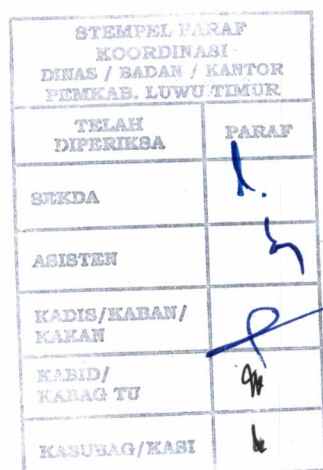 STEMPEL PARAF
KOORDINASI
DINAS / BADAN / KANTOR
PEMKAB. LUWU TIMUR
TELAH
DIPERIKSA
PARAF
SEKDA
ASISTEN
KADIS/KABAN/
KAKAN
KABID/
KABAG TU
KASUBAG/KASI